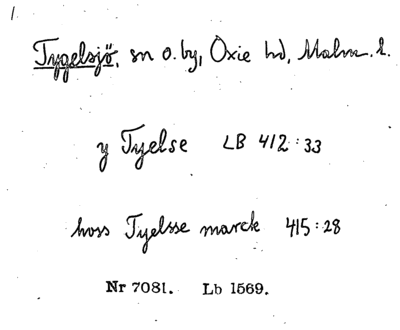 1.
Tygelsjö, sn o. by, Oxie hd, Malm. l.
y Tyelse LB 412:33
hoss Tyelsse marck 415:28
Nr 7081. Lb 1569.